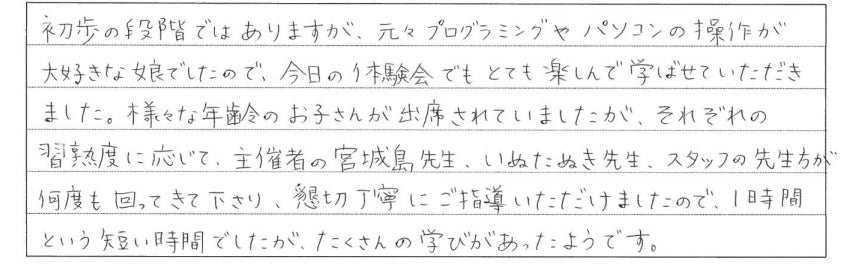 初歩の段階ではありますが、元々プログラミングや パソコンの操作が
大好きな娘でしたので、今日の体験会でも とても 楽しんで 学ばせていただき
ました。様々な年齢の お子さんが 出席されていましたが、それぞれの
習熟度に応じて、主催者の宮城島先生、いぬたぬき先生、スタッフの先生方が
何度も 回ってきて下さり、懇切丁寧に ご指導いただけましたので、1時間
という短い時間でしたが、たくさんの 学びがあったようです。